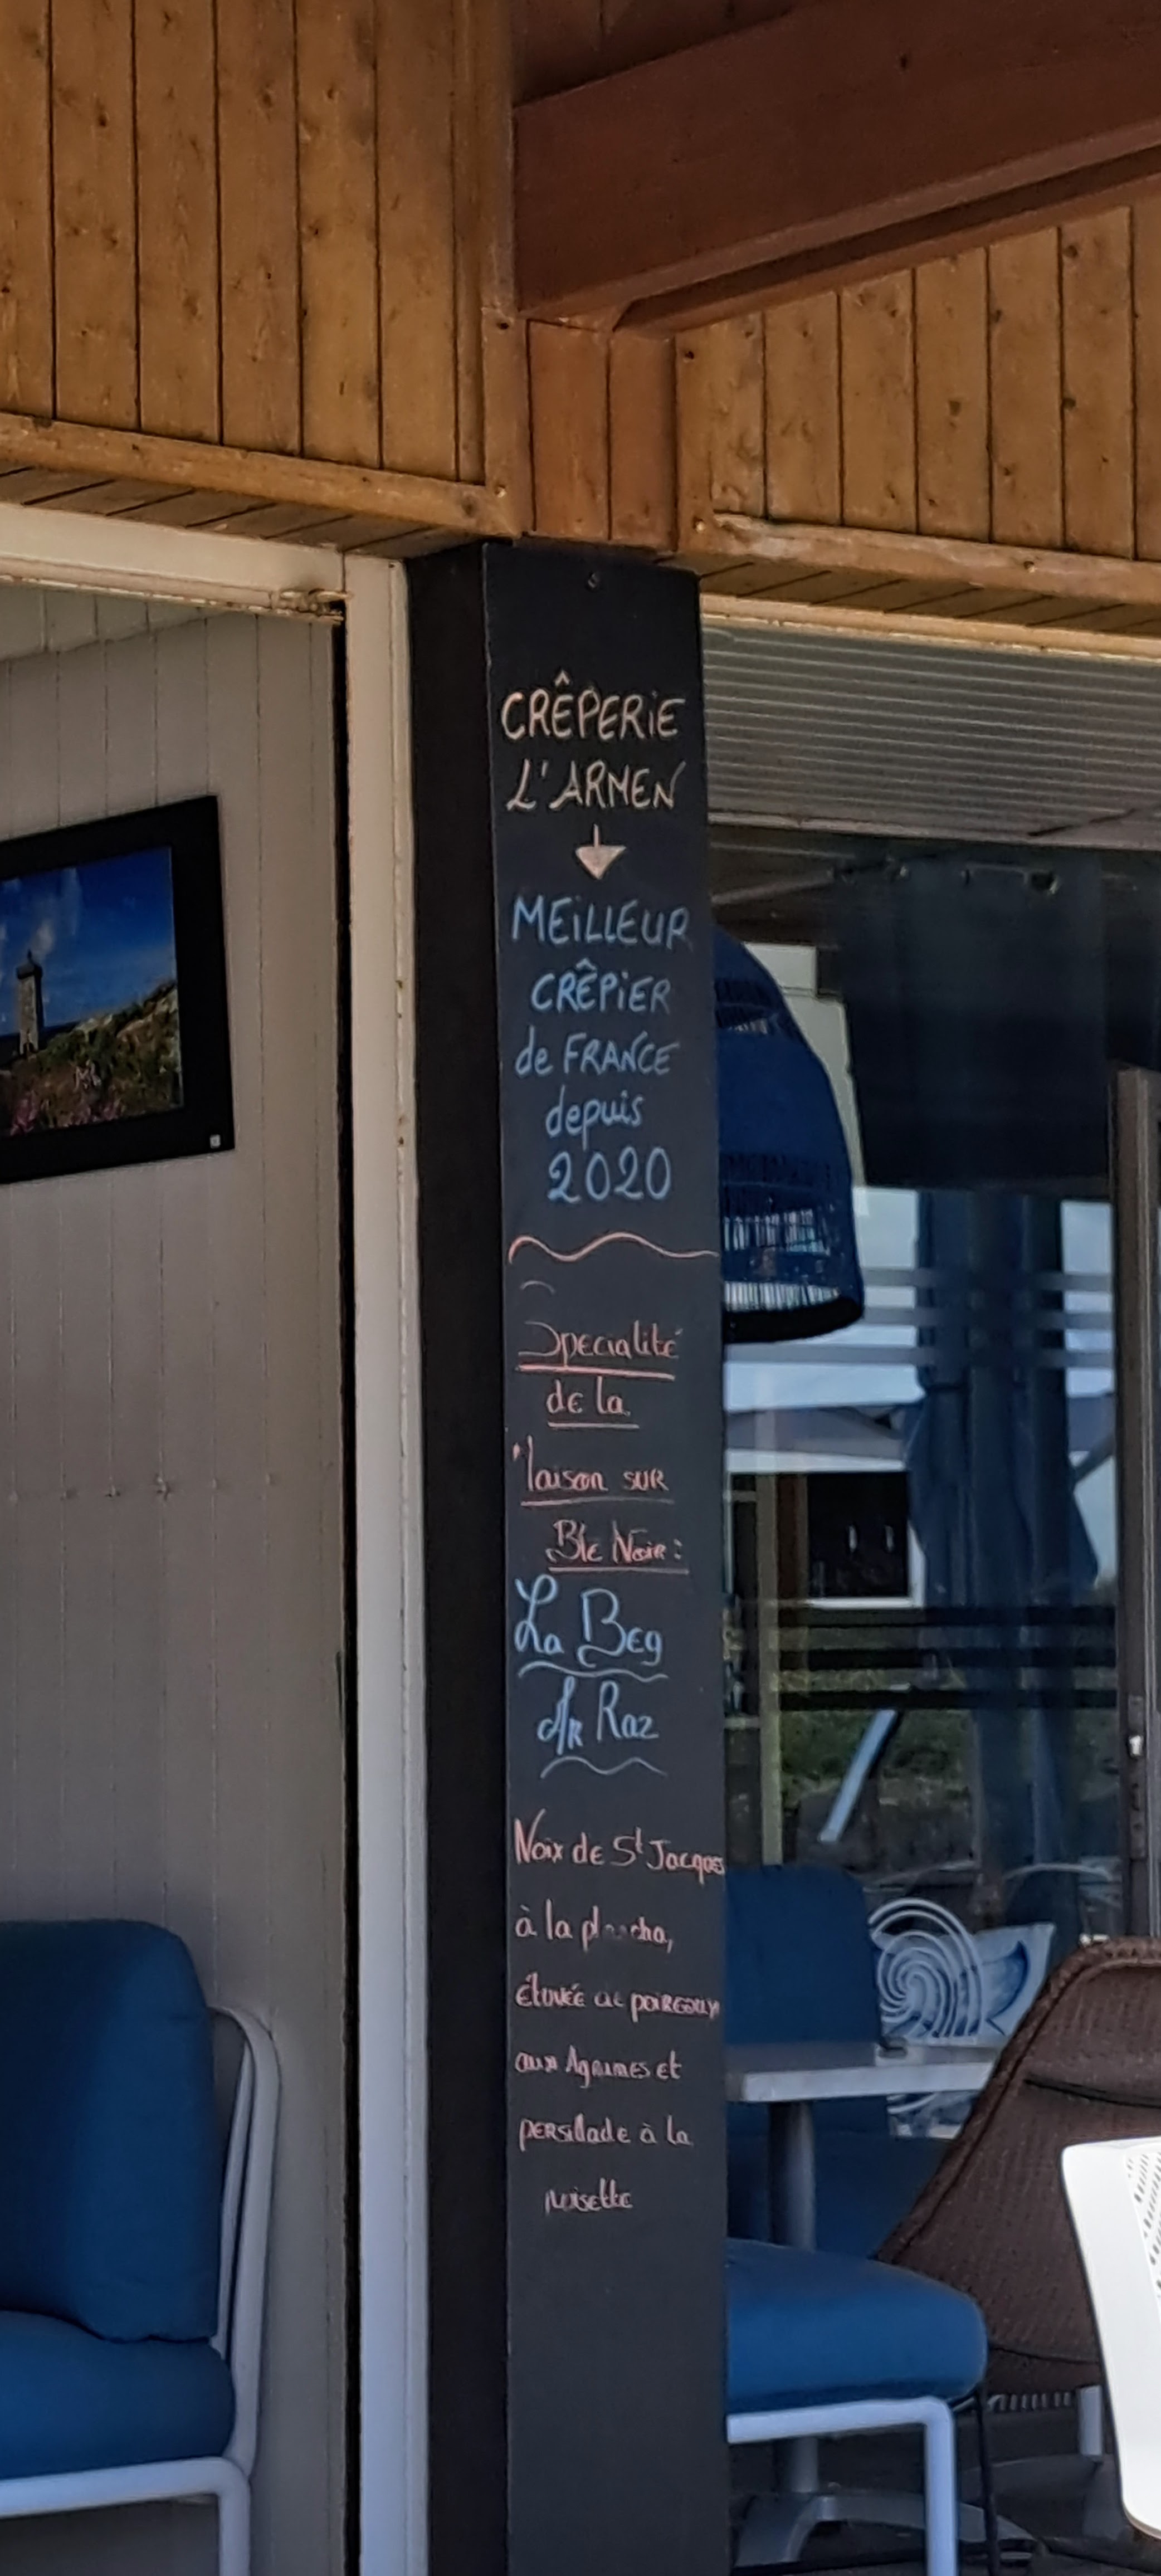 CRÊPERIE
L'ARMEN
MEILLEUR
CRÊPIER
de FRANCE
depuis
2020
Spécialité
de la
Maison SUR
Blé Noir :
La Beg
Ar Raz
Noix de St Jacques
à la plancha,
étuvée de poireaux
aux Agrumes et
persillade à la
noisette